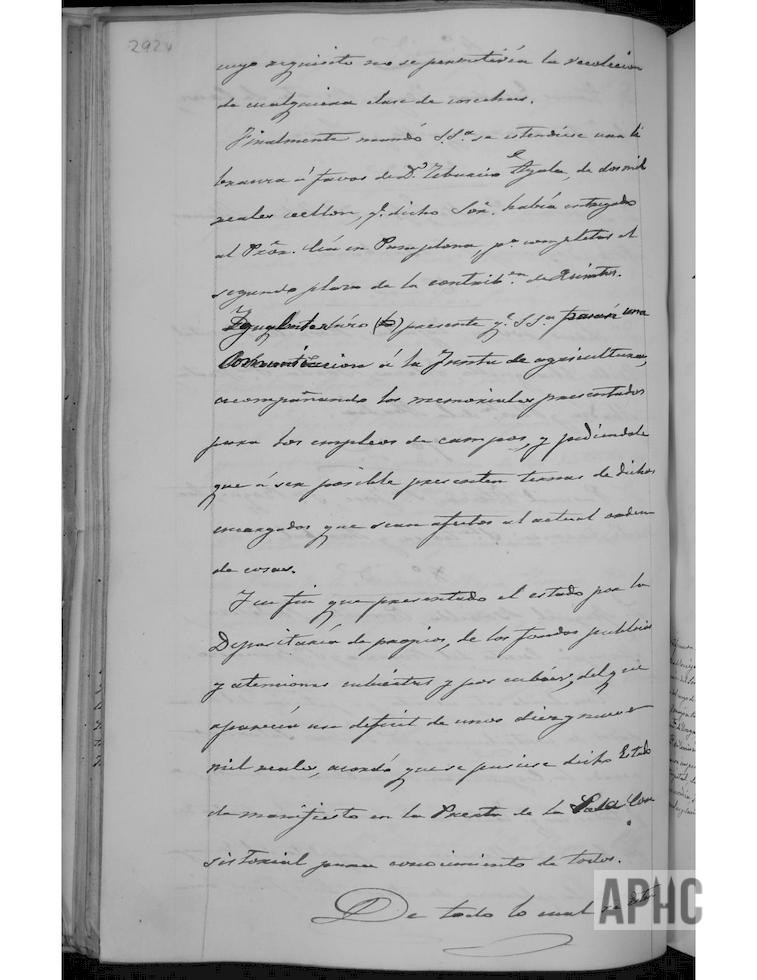 292v
cuyo requisito no se permitiría la recoleccion
de cualquiera clase de cosechas.
Finalmente mandó S.Sª. se estendiese una li
branza á favor de Dⁿ. Ayala, de dos mil
reales vellon, qᵉ. dicho Señ. había entregado
al en Pamplona, pª. completar el
segundo plazo de la contribᵒⁿ. de Quintos.
Igualmente hizo presente qᵉ. S.Sª. pasaría una
Comunicacion á la Junta de agricultura,
acompañando los memoriales presentados
para los empleos de campos, y pidiendole
que á ser posible presenten ternas de dichos
encargados que sean afectos al actual orden
de cosas.
Y en fin que presentado el estado por la
Depositaría de propios, de los fondos publicos
y atenciones cubiertas y por cubrir, del que
aparecia un deficit de unos diez y nueve
mil reales, acordó que se pusiese dicho Estado
de manifiesto en la Puerta de la Sala Con
sistorial para conocimiento de todos.
De todo lo cual
APHC